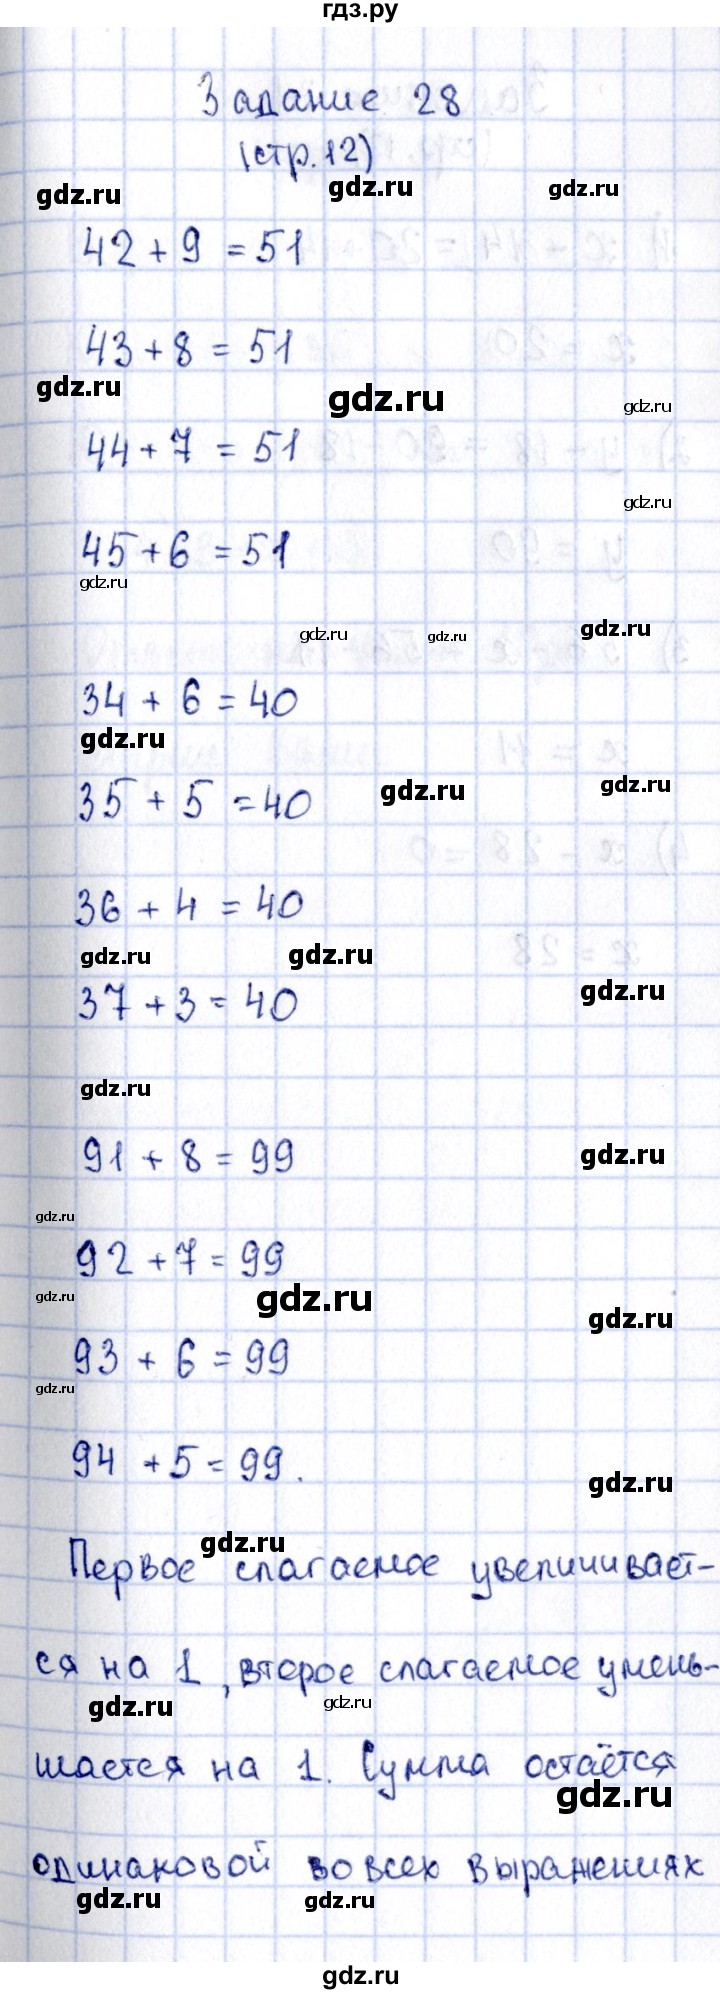 гдз.ру
Задание 28
(стр.12)
gdz.ru gdz.ru gdz.ru
42 + 9 = 51
43 + 8 = 51
gdz.ru gdz.ru gdz.ru
44 + 7 = 51
gdz.ru
45 + 6 = 51
gdz.ru
gdz.ru gdz.ru gdz.ru
34 + 6 = 40
gdz.ru
gdz.ru gdz.ru
35 + 5 = 40
36 + 4 = 40
gdz.ru gdz.ru
gdz.ru
37 + 3 = 40
gdz.ru
91 + 8 = 99
gdz.ru
gdz.ru
92 + 7 = 99
gdz.ru gdz.ru
gdz.ru
93 + 6 = 99
gdz.ru
94 + 5 = 99.
gdz.ru
gdz.ru
Первое слагаемое увеличивает-
ся на 1, второе слагаемое умень-
gdz.ru gdz.ru
шается на 1. Сумма остаётся
gdz.ru
одинаковой во всех выражениях
gdz.ru gdz.ru
gdz.ru